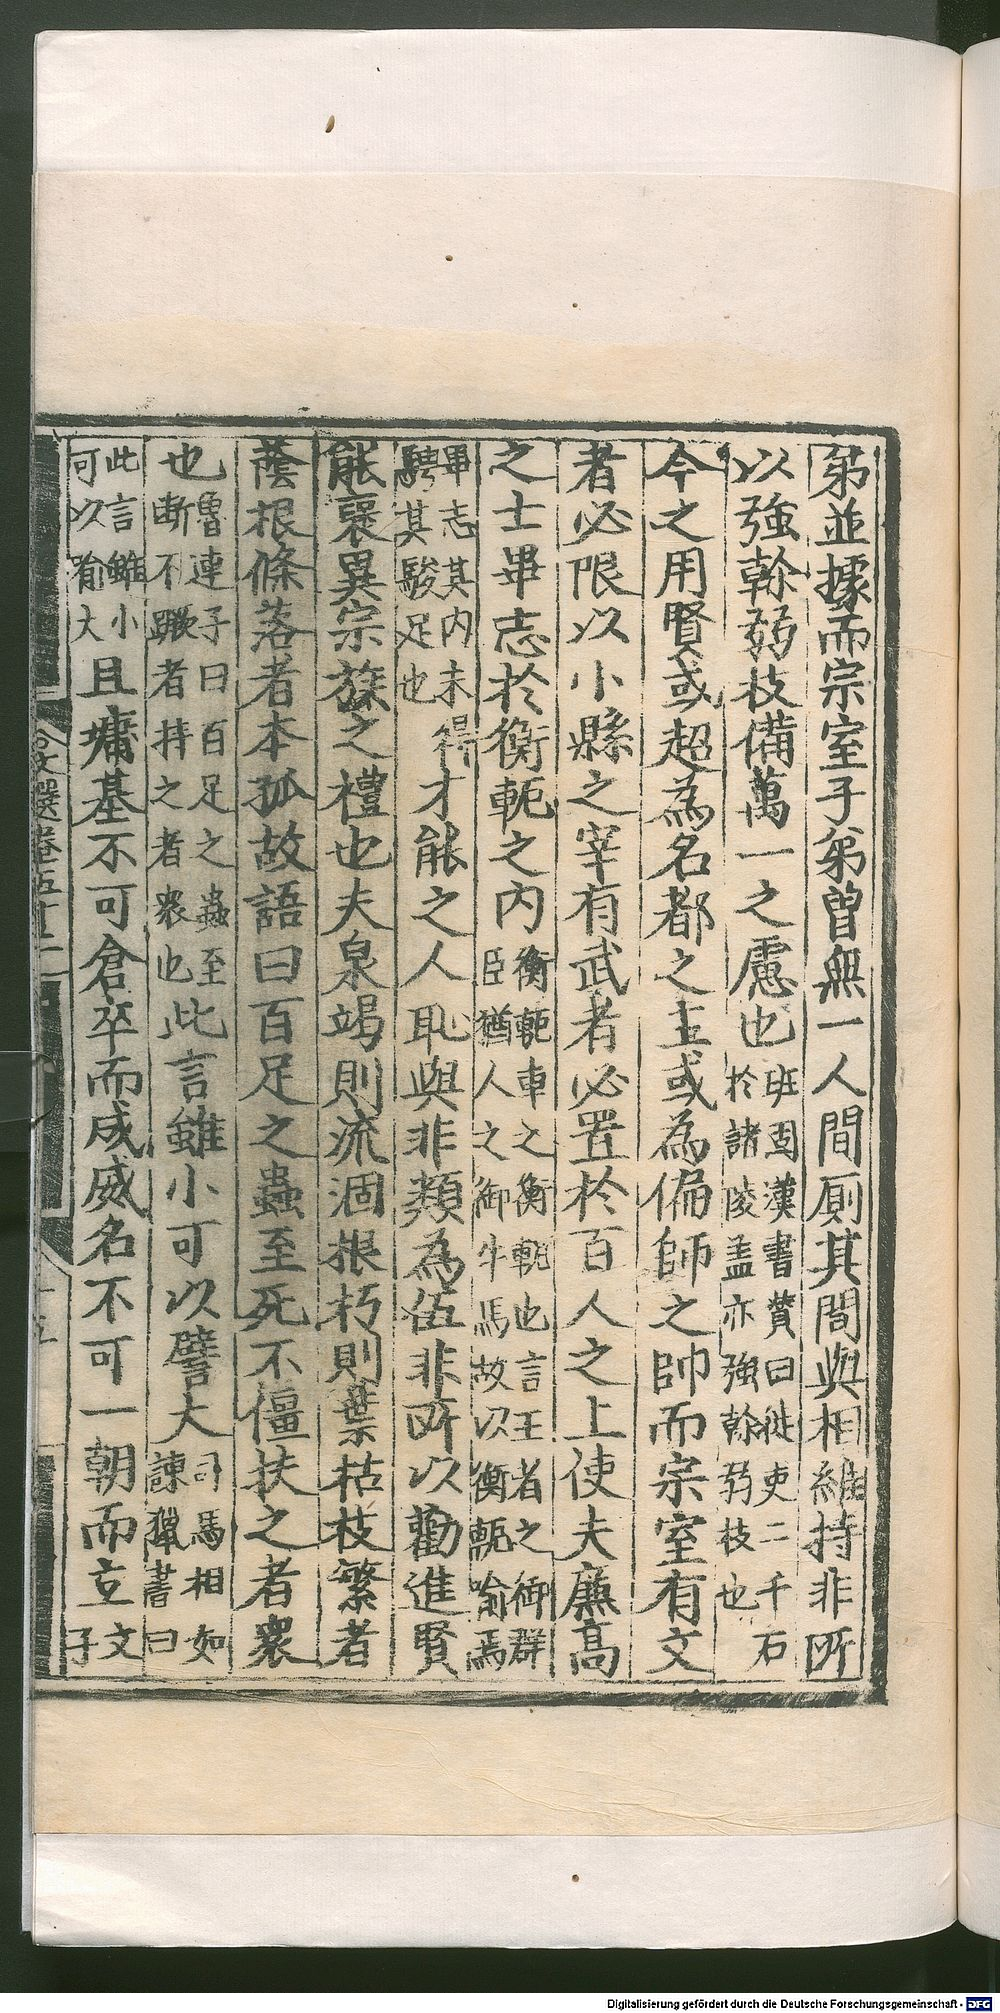 弟並據而宗室子弟曾無一人間厠其間與相維持非所
以強幹弱枝備萬一之慮也班固漢書賛曰徙吏二千石於諸陵盖亦強幹弱枝也
今之用賢或超為名都之主或為偏師之帥而宗室有文
者必限以小縣之宰有武者必置於百人之上使夫廉高
之士畢志於衡軛之內衡軛車之衡軛也言王者之御群臣猶人之御牛馬故以衡軛喻焉
畢志其內未得騁其駿足也才能之人恥與非類為伍非所以勸進賢
能襃異宗族之禮也夫泉竭則流涸根朽則葉枯枝繁者
蔭根條落者本孤故語曰百足之蟲至死不僵扶之者衆
也魯連子曰百足之蟲至斷不蹶者持之者衆也此言雖小可以譬大司馬相如諫獵書曰
此言雖小可以喻大且墉基不可倉卒而成威名不可一朝而立文子
文選卷五十二
十五
Digitalisierung gefördert durch die Deutsche Forschungsgemeinschaft - DFG